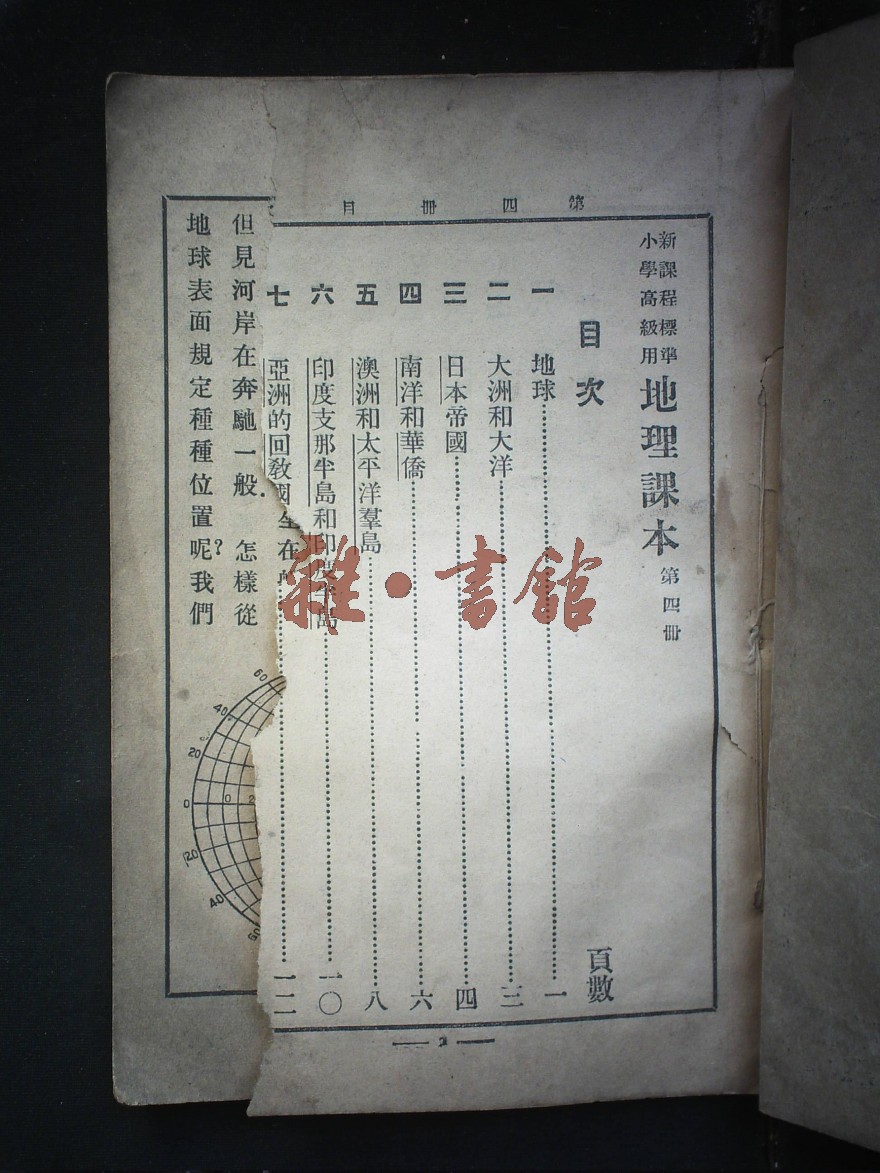 第四冊目
新課程標準
小學高級用
地理課本 第四冊
目次 頁數
一 地球……一
二 大洲和大洋……三
三 日本帝國……四
四 南洋和華僑……六
五 澳洲和太平洋羣島……八
六 印度支那半島和印度半島……一〇
七 亞洲的回敎國……一二
但見河岸在奔馳一般 怎樣從
地球表面規定種種位置呢?我們
60
40
20
0
20
40
60
0
雜·書館